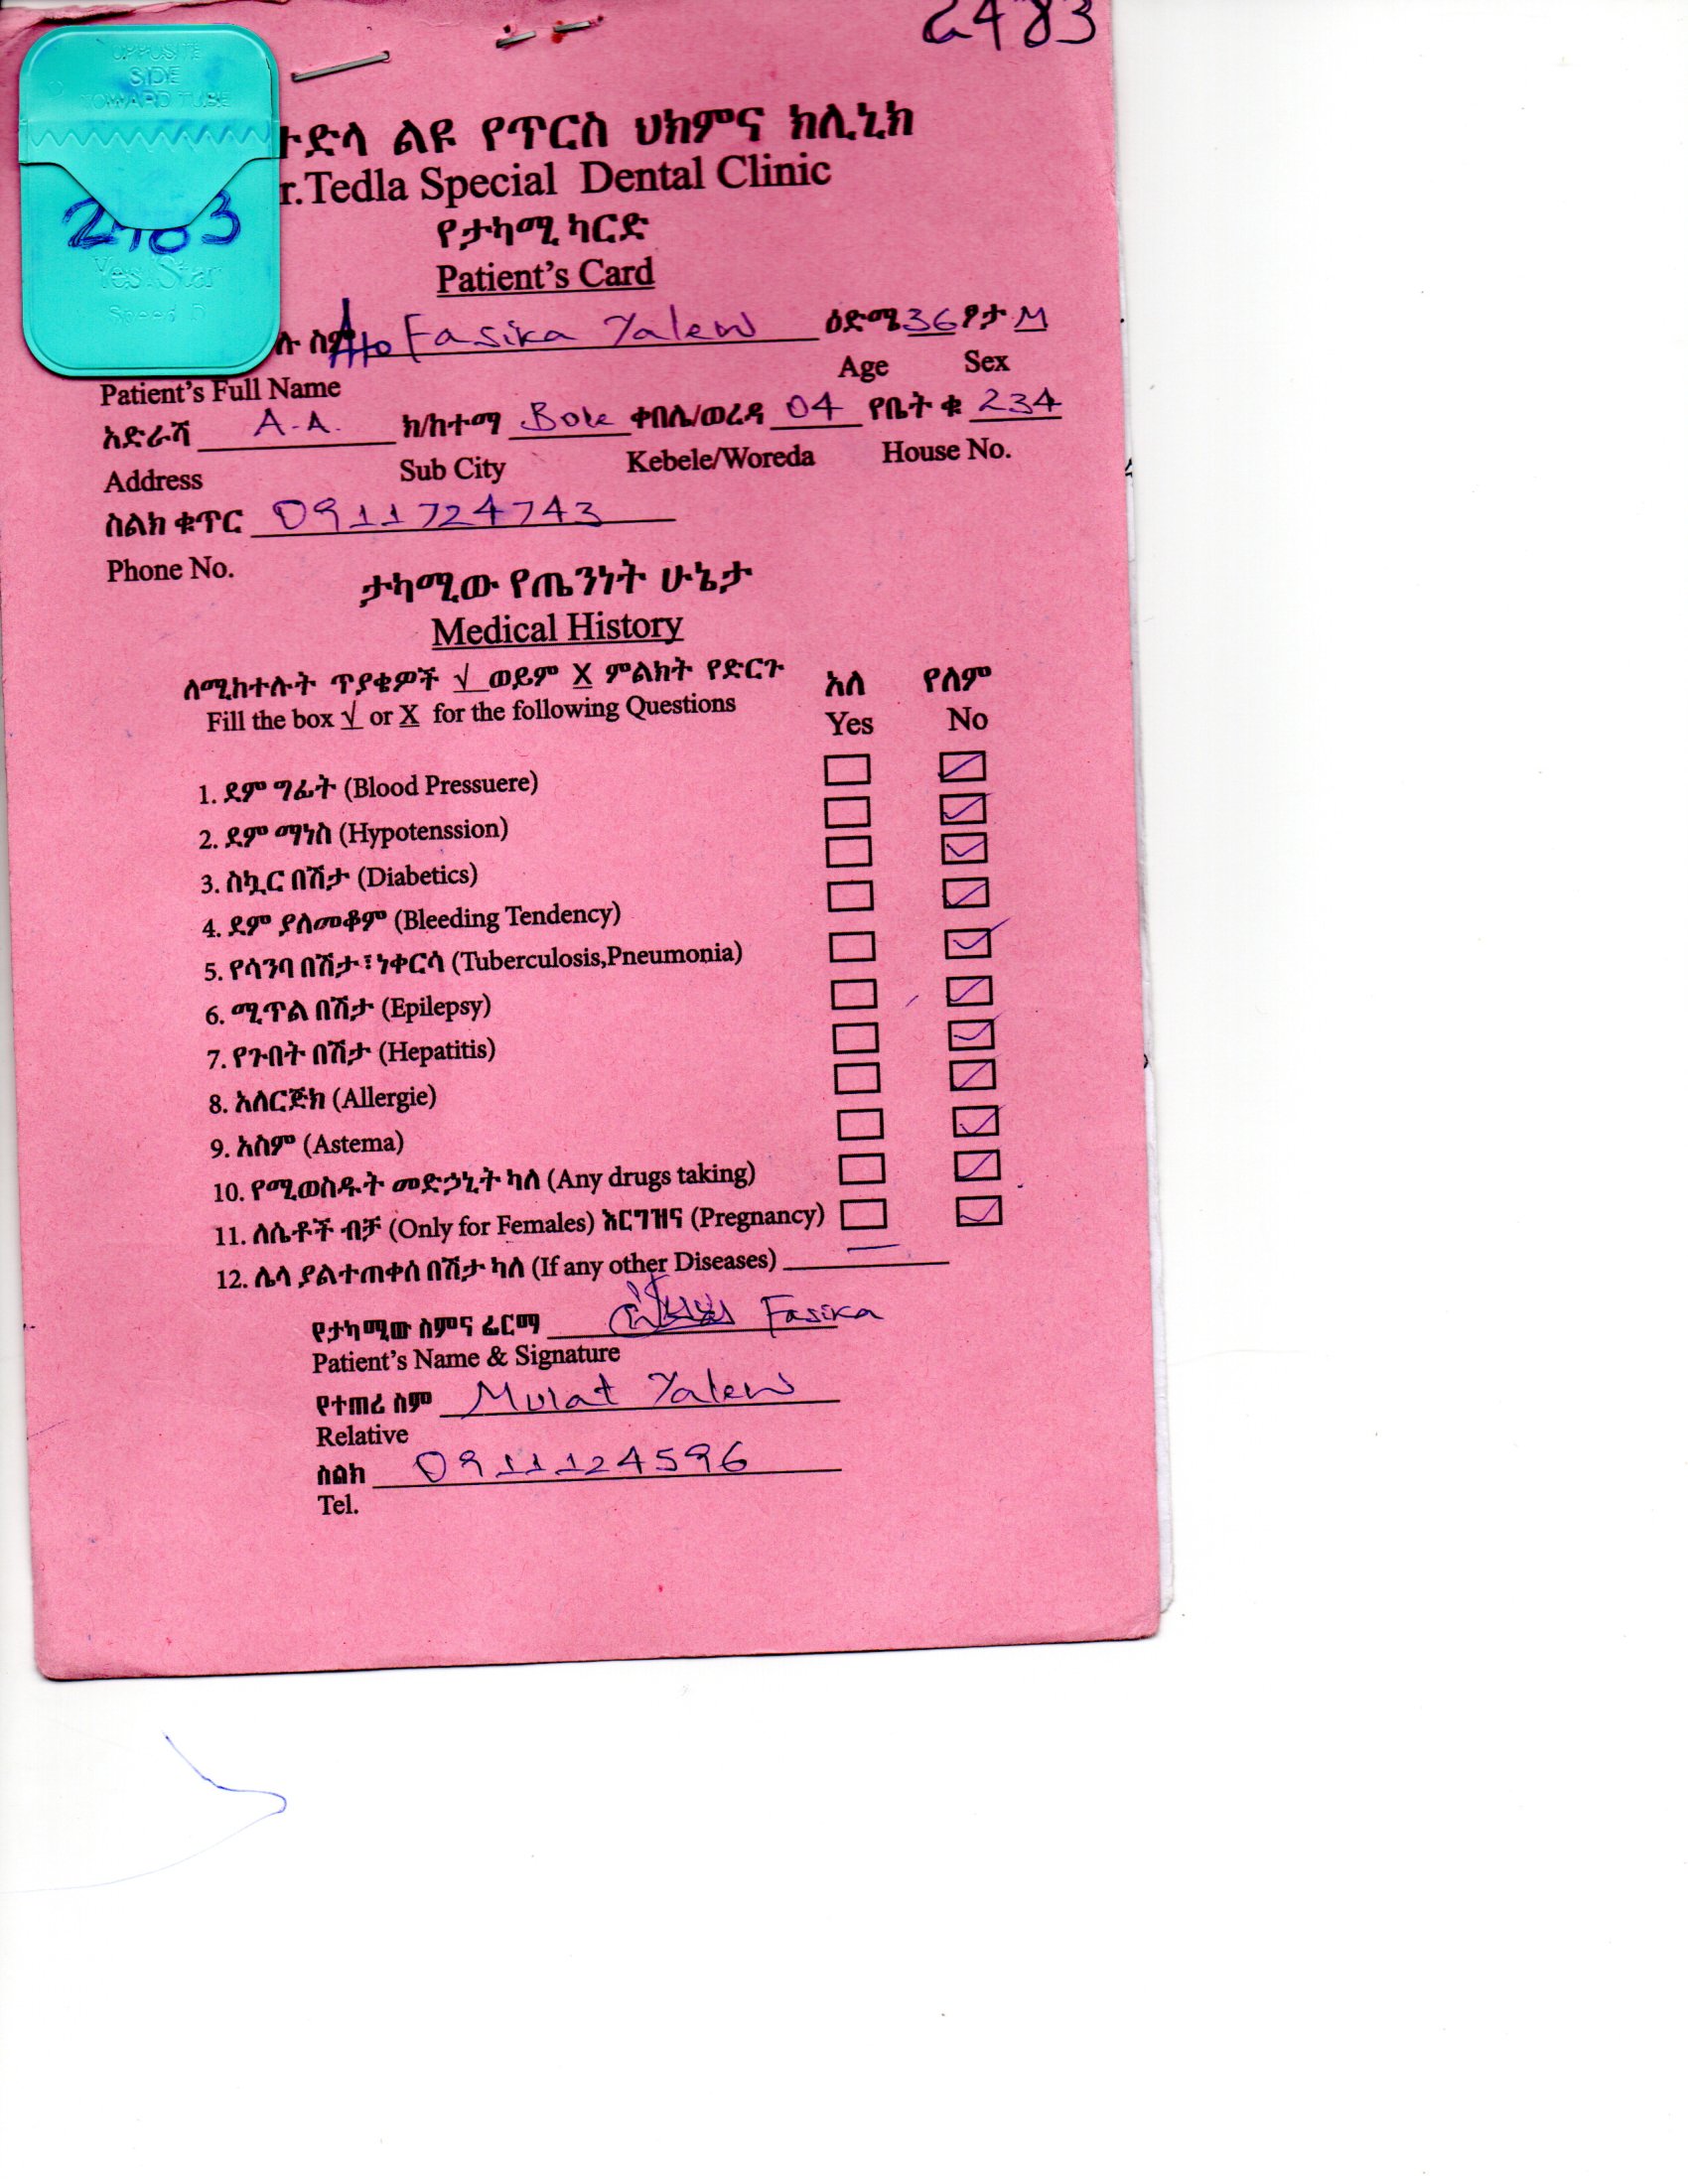 2483
OPPOSITE
SIDE
TOWARD TUBE
2483
Yes!Star
Speed D
ተድላ ልዩ የጥርስ ህክምና ክሊኒክ
r.Tedla Special Dental Clinic
የታካሚ ካርድ
Patient's Card
ሉ ስም Ato Fasika Yalew ዕድሜ 36 ፆታ M
Patient's Full Name Age Sex
አድራሻ A.A. ክ/ከተማ Bole ቀበሌ/ወረዳ 04 የቤት ቁ 234
Address Sub City Kebele/Woreda House No.
ስልክ ቁጥር 0911724743
Phone No.
ታካሚው የጤንነት ሁኔታ
Medical History
ለሚከተሉት ጥያቄዎች √ ወይም X ምልክት የድርጉ አለ የለም
Fill the box √ or X for the following Questions Yes No
1. ደም ግፊት (Blood Pressuere) ✓
2. ደም ማነስ (Hypotenssion) ✓
3. ስኳር በሽታ (Diabetics) ✓
4. ደም ያለመቆም (Bleeding Tendency) ✓
5. የሳንባ በሽታ፣ነቀርሳ (Tuberculosis,Pneumonia) ✓
6. ሚጥል በሽታ (Epilepsy) ✓
7. የጉበት በሽታ (Hepatitis) ✓
8. አለርጅክ (Allergie) ✓
9. አስም (Astema) ✓
10. የሚወስዱት መድኃኒት ካለ (Any drugs taking) ✓
11. ለሴቶች ብቻ (Only for Females) እርግዝና (Pregnancy) ✓
12. ሌላ ያልተጠቀሰ በሽታ ካለ (If any other Diseases) —
የታካሚው ስምና ፊርማ Fasika
Patient's Name & Signature
የተጠሪ ስም Mulat Yalew
Relative
ስልክ 0911124596
Tel.